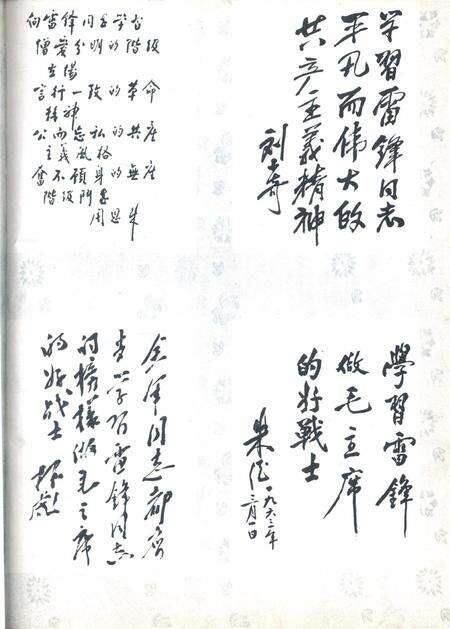 向雷锋同志学習
憎愛分明的階級
立場
言行一致的革命
精神
公而忘私的共產
主義風格
奮不顧身的無產
階級鬥志
周恩来
学習雷鋒同志
平凡而伟大的
共产主義精神
刘少奇
學習雷鋒
做毛主席
的好戰士
朱德
一九六三年
三月一日
全軍同志都
要学习雷鋒同志
的榜樣做毛主席
的好战士
林彪